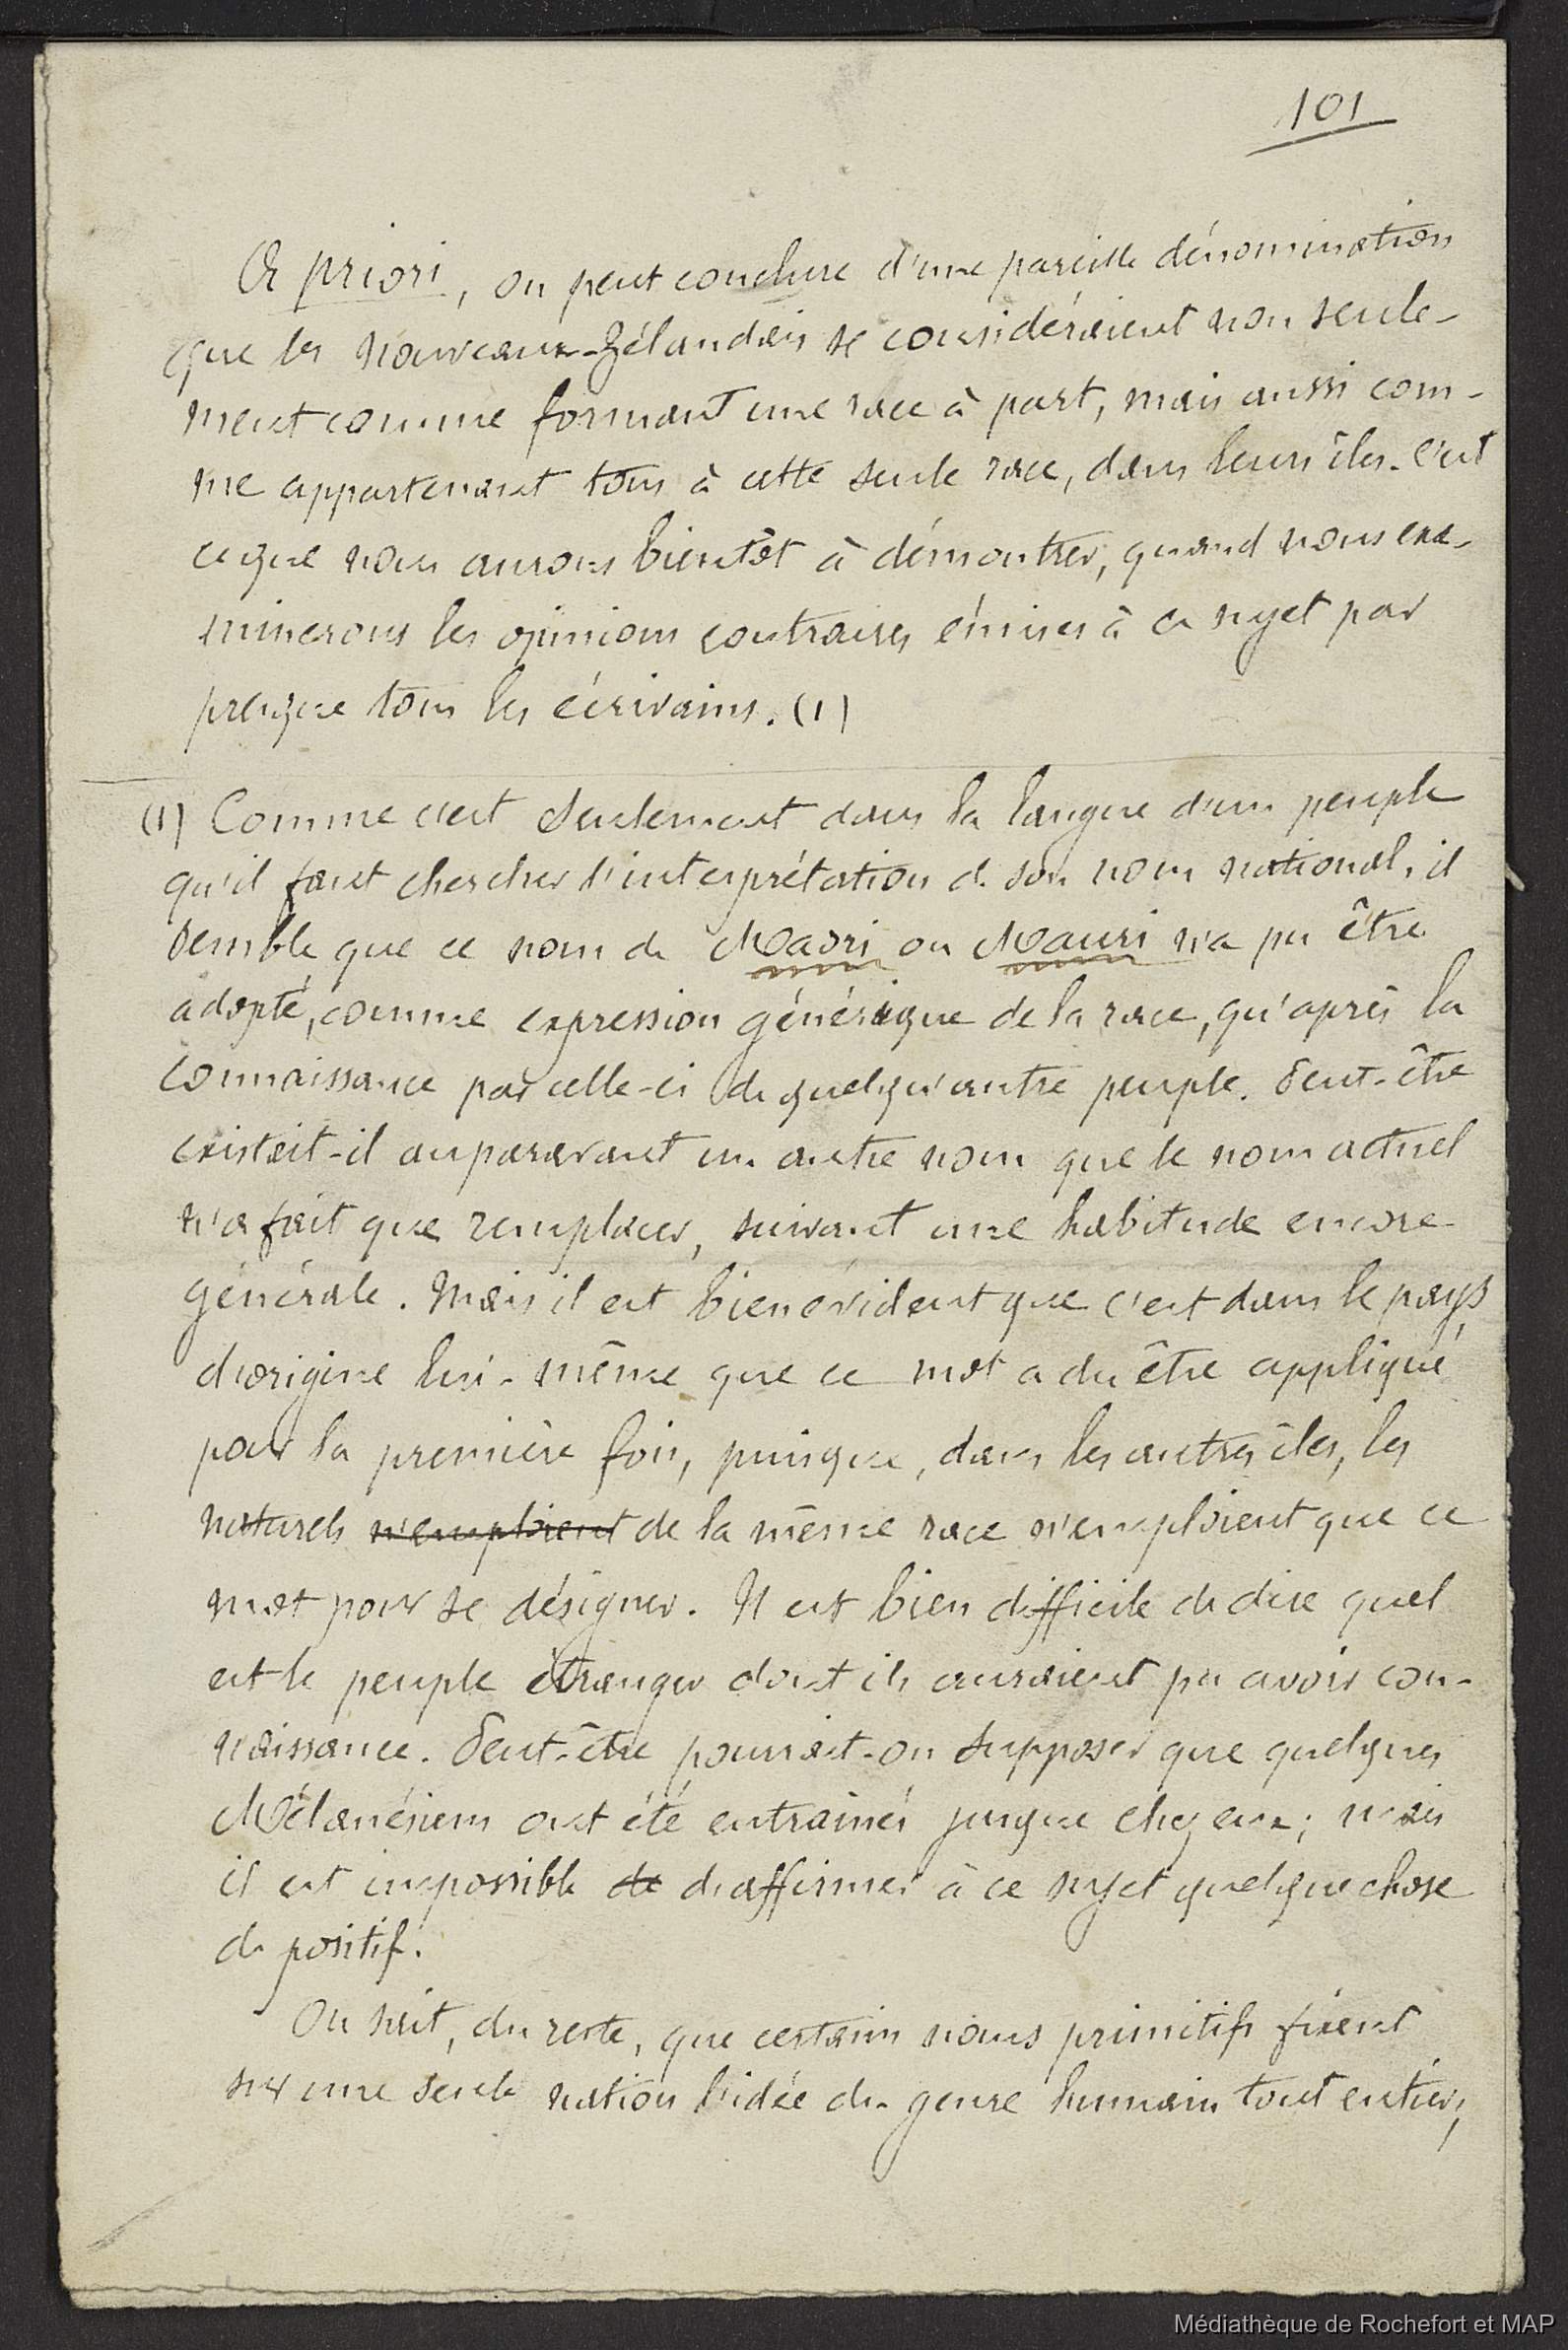 101
A priori, on peut conclure d'une pareille dénomination
que les Nouveaux-Zélandais se considéraient non seule-
ment comme formant une race à part, mais aussi com-
me appartenant tous à cette seule race, dans leurs îles. C'est
ce que nous aurons bientôt à démontrer, quand nous exa-
minerons les opinions contraires émises à ce sujet par
presque tous les écrivains. (1)
(1) Comme c'est seulement dans la langue d'un peuple
qu'il faut chercher l'interprétation de son nom national, il
semble que ce nom de Maori ou Mauri n'a pu être
adopté, comme expression générique de la race, qu'après la
connaissance par celle-ci de quelqu'autre peuple. Peut-être
existait-il auparavant un autre nom que le nom actuel
n'a fait que remplacer, suivant une habitude encore
générale. Mais il est bien évident que c'est dans le pays
d'origine lui-même que ce mot a du être appliqué
pour la première fois, puisque, dans les autres îles, les
naturels n'emploient de la même race n'emploient que ce
mot pour se désigner. Il est bien difficile de dire quel
est le peuple étranger dont ils auraient pu avoir con-
naissance. Peut-être pourrait-on supposer que quelques
Mélanésiens ont été entrainés jusque chez eux; mais
il est impossible de d'affirmer à ce sujet quelque chose
de positif.
On sait, du reste, que certains noms primitifs fixent
sur une seule nation l'idée du genre humain tout entier;
Médiathèque de Rochefort et MAP